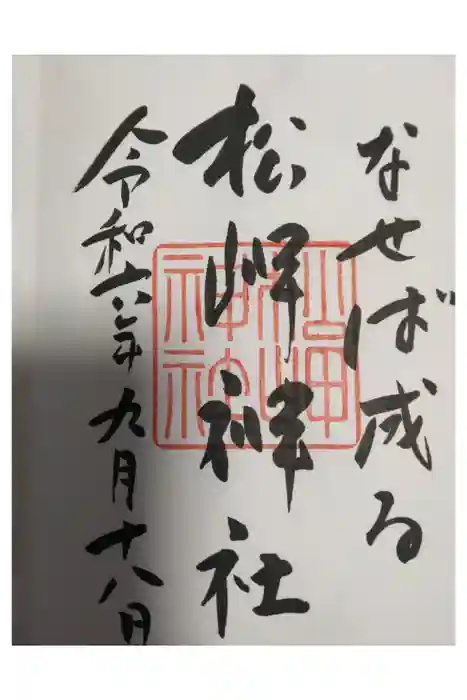 なせば成る
松岬神社
令和六年九月十八日
松岬神社